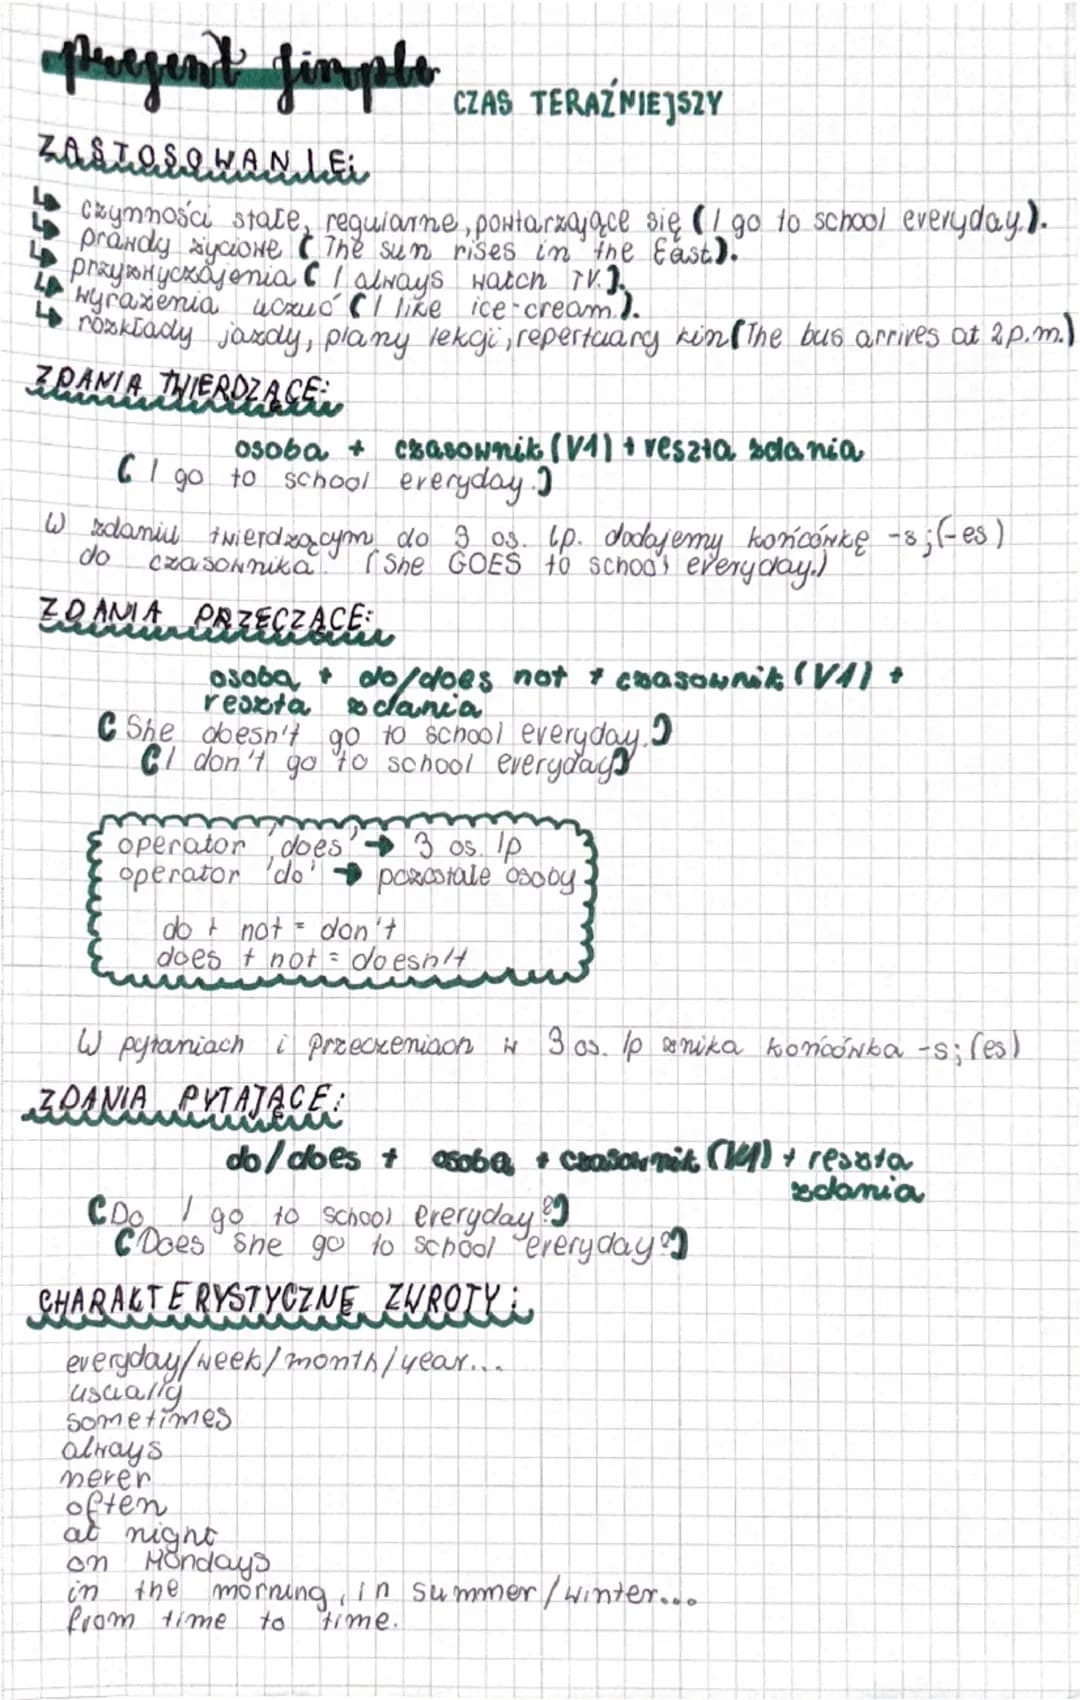 present simple
CZAS TERAŹNIEJSZY
ZASTOSOWANIE:
czynności stałe, regularne, powtarzające się (I go to school everyday.).
prawdy życiowe (The sun rises in the East.).
przyzwyczajenia (I always watch TV.).
wyrażenia uczuć (I like ice-cream.).
rozkłady jazdy, plany lekcji, repertuary kin (The bus arrives at 2p.m.)
ZDANIA TWIERDZĄCE:
osoba + czasownik (V1) + reszta zdania
(I go to school everyday.)
W zdaniu twierdzącym do 3 os. lp. dodajemy końcówkę -s;(-es)
do czasownika. (She GOES to school everyday.)
ZDANIA PRZECZĄCE:
osoba + do/does not + czasownik (V1) +
reszta zdania
(She doesn't go to school everyday.)
(I don't go to school everyday)
operator 'does' → 3 os. lp
operator 'do' → pozostałe osoby
do + not = don't
does + not = doesn't
W pytaniach i przeczeniach w 3 os. lp znika końcówka -s; (es)
ZDANIA PYTAJĄCE:
do/does + osoba + czasownik (V1) + reszta
zdania
(Do I go to school everyday?)
(Does she go to school everyday?)
CHARAKTERYSTYCZNE ZWROTY:
everyday/week/month/year...
usually
sometimes
always
never
often
at night
on Mondays
in the morning, in summer/winter...
from time to time.